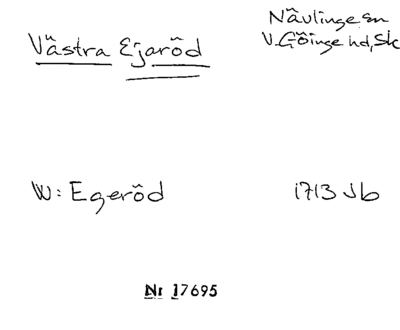 Västra Ejaröd
Nävlinge sn
V. Göinge hd, Sk
W: Egeröd
1713 Jb
Nr 17695